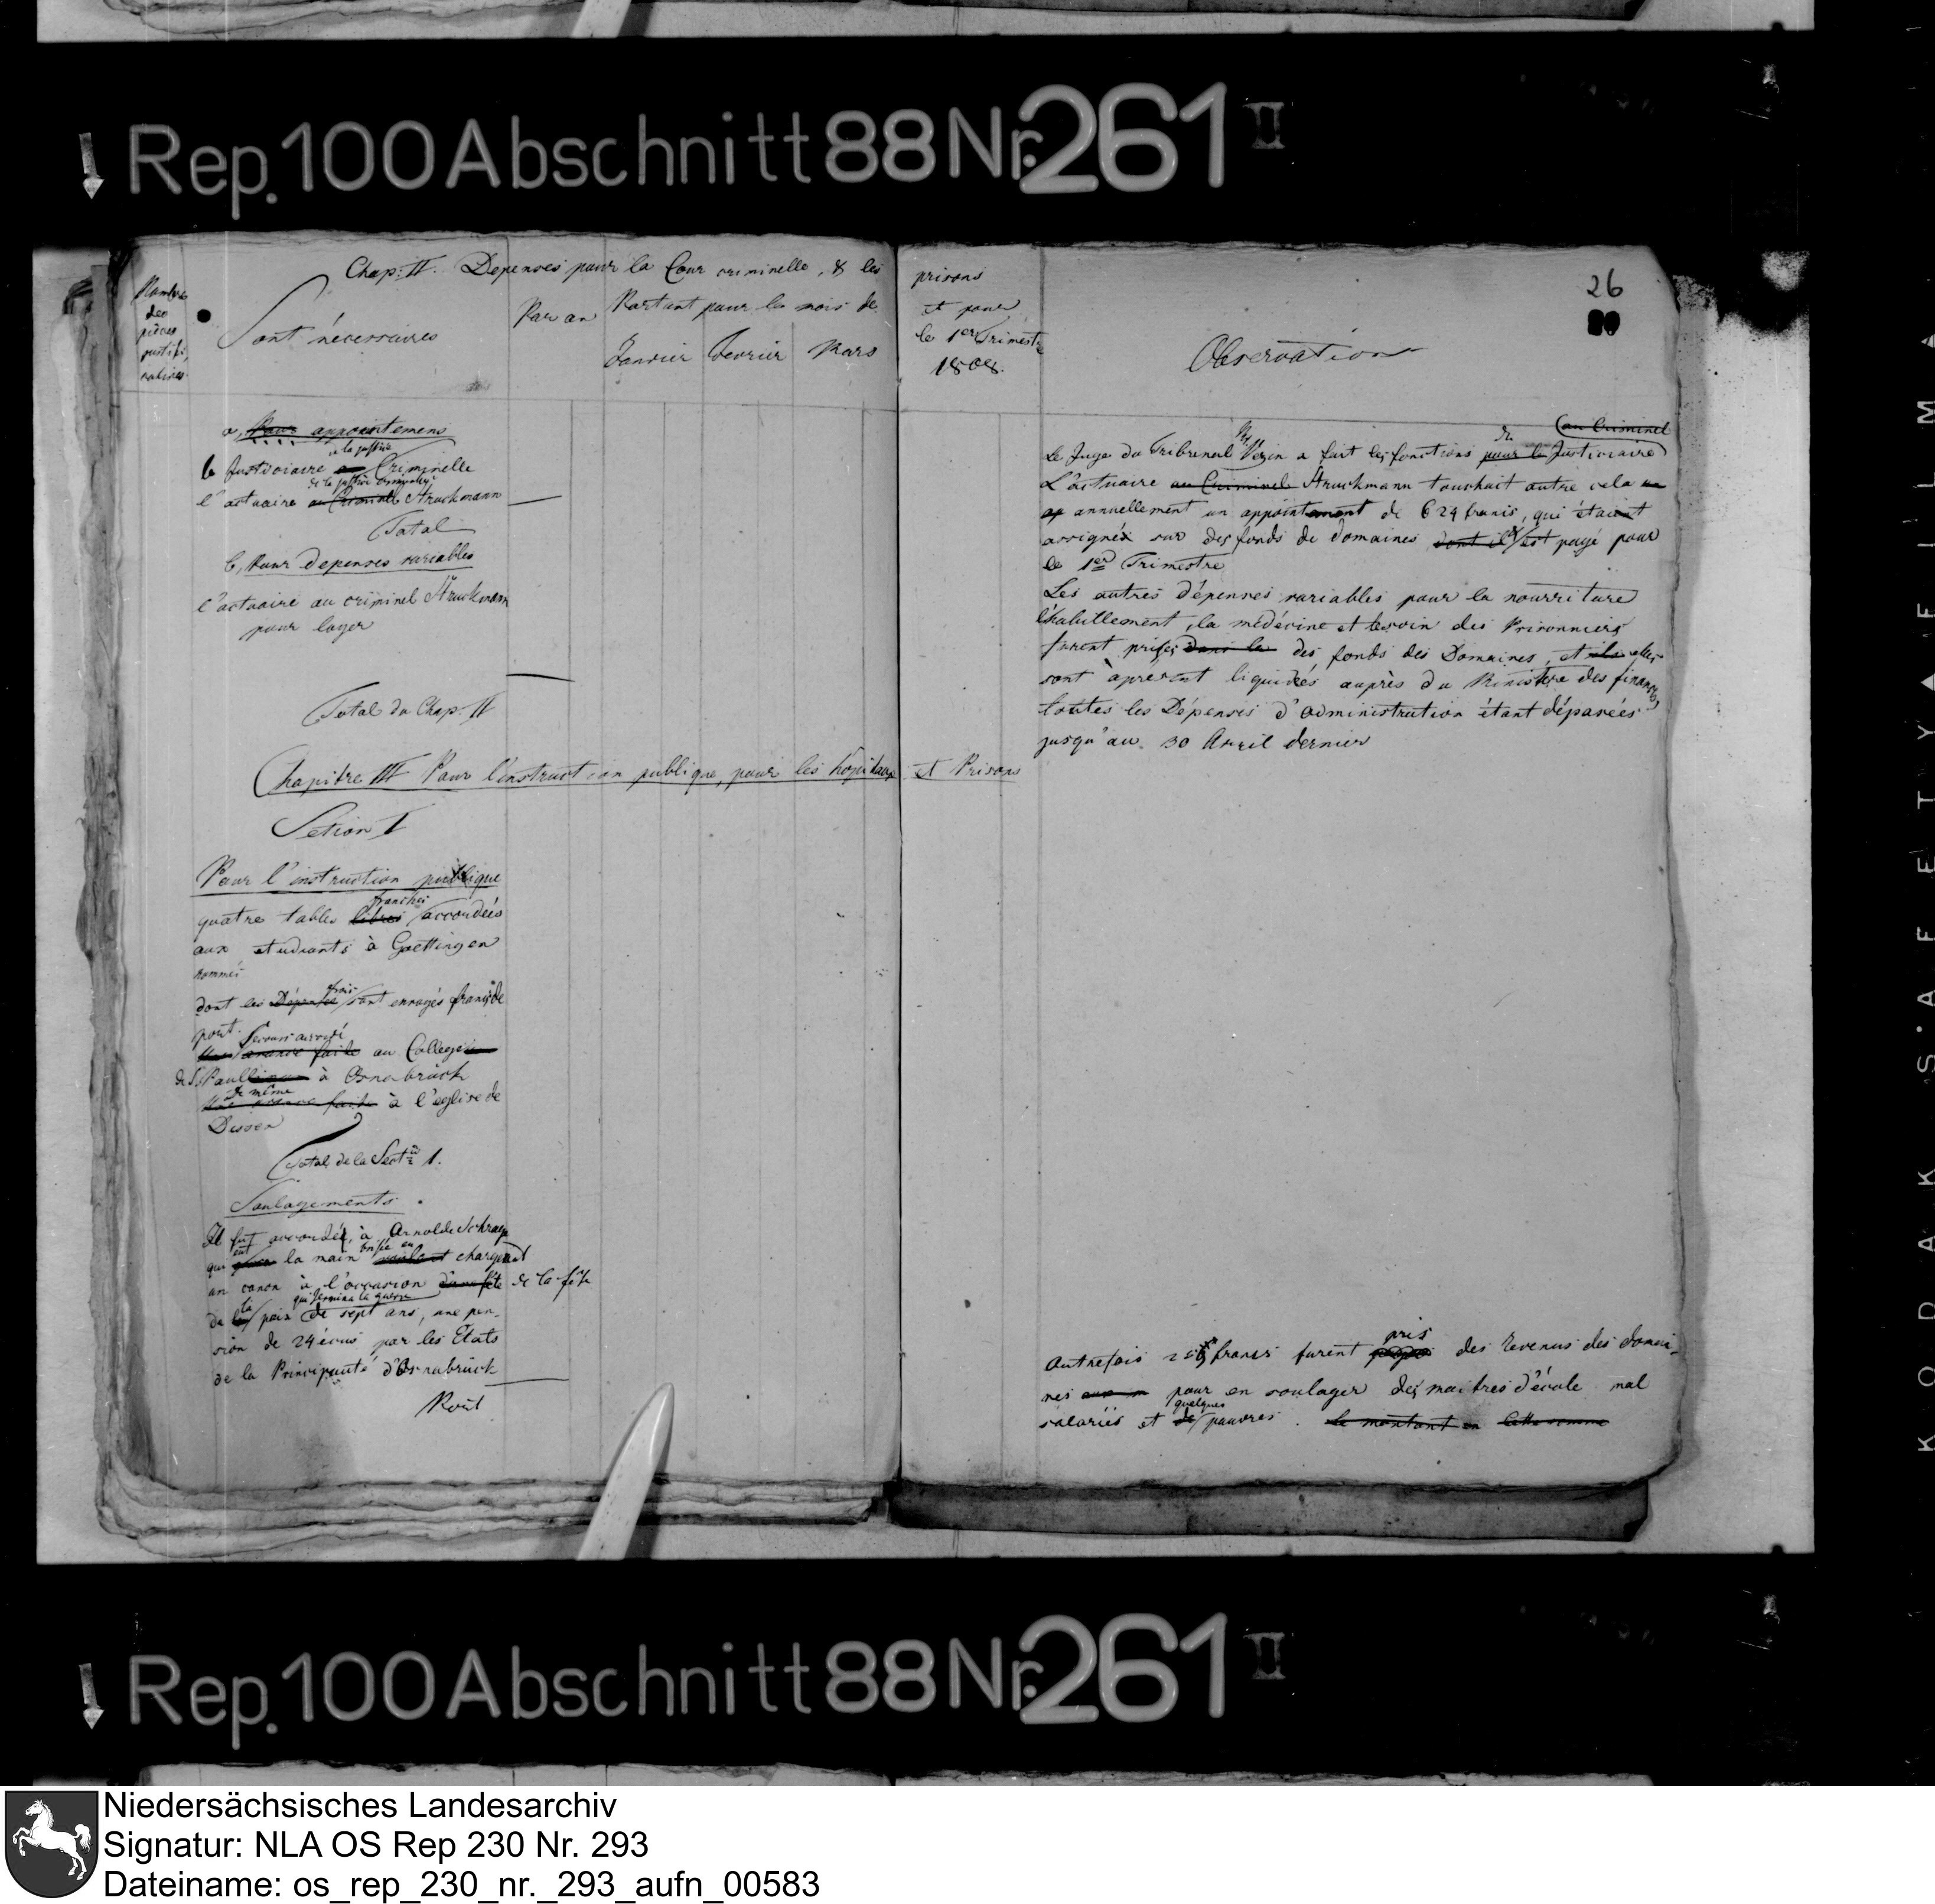 Rep. 100 Abschnitt 88 Nr. 261 II
Chap. II. Depenses pour la Cour criminelle, & les prisons
26
Nombre des pièces justificatives
Sont nécessaires
Par an
Partant pour le mois de
Janvier Fevrier Mars
et pour
le 1er Trimestre
1808.
Observation
a, Pour appointemens
le Justiciaire au Criminelle
de la justice
l'actuaire au Criminel Struckmann
de la justice criminelle
Total
b, Pour depenses variables
l'actuaire au criminel Struckmann
pour loyer
Total du Chap. II
Chapitre III Pour l'instruction publique, pour les hopitaux et Prisons
Section I
Pour l'instruction publique
quatre tables libres accordées
franches
aux etudiants à Goettingen
nommés
dont les Dépenses sont
frais
port.
Secours accordé
Une avance faite au College
de St. Paul à Osnabrück
de même
Une avance faite à l'eglise de
Dissen
Total de la Sect. 1.
Soulagements
Il fut accordé, à Arnold Schrap
qui eut la main brisée en chargeant
un canon à l'occasion d'une fête de la fête
qui termina la guerre
de la paix de sept ans, une pen-
sion de 24 écus par les Etats
de la Principauté d'Osnabrück
Port
au Criminel
Le Juge du Tribunal Mr. Vezin a fait les fonctions pour le Justiciaire
de
L'actuaire au Criminel Struckmann touchait outre cela un
annuellement un appointement de 624 francs, qui étaient
assignés sur des fonds de domaines dont il est payé pour
le 1er Trimestre
Les autres dépenses variables pour la nourriture
l'habillement, la médécine et besoin des Prisonniers
furent prises dans les des fonds des Domaines, et ils elles
sont àpresent liquidées auprès du Ministère des finances
toutes les Dépenses d'administration étant séparées
jusqu'au 30 Avril dernier
Autrefois francs furent pris des revenus des domai-
nes pour en soulager des maitres d'école mal
salariés et de pauvres. Le montant en cette somme
quelques
Rep. 100 Abschnitt 88 Nr. 261 II
Niedersächsisches Landesarchiv
Signatur: NLA OS Rep 230 Nr. 293
Dateiname: os_rep_230_nr._293_aufn_00583
KODAK S.A.F.E.T.Y. FILM